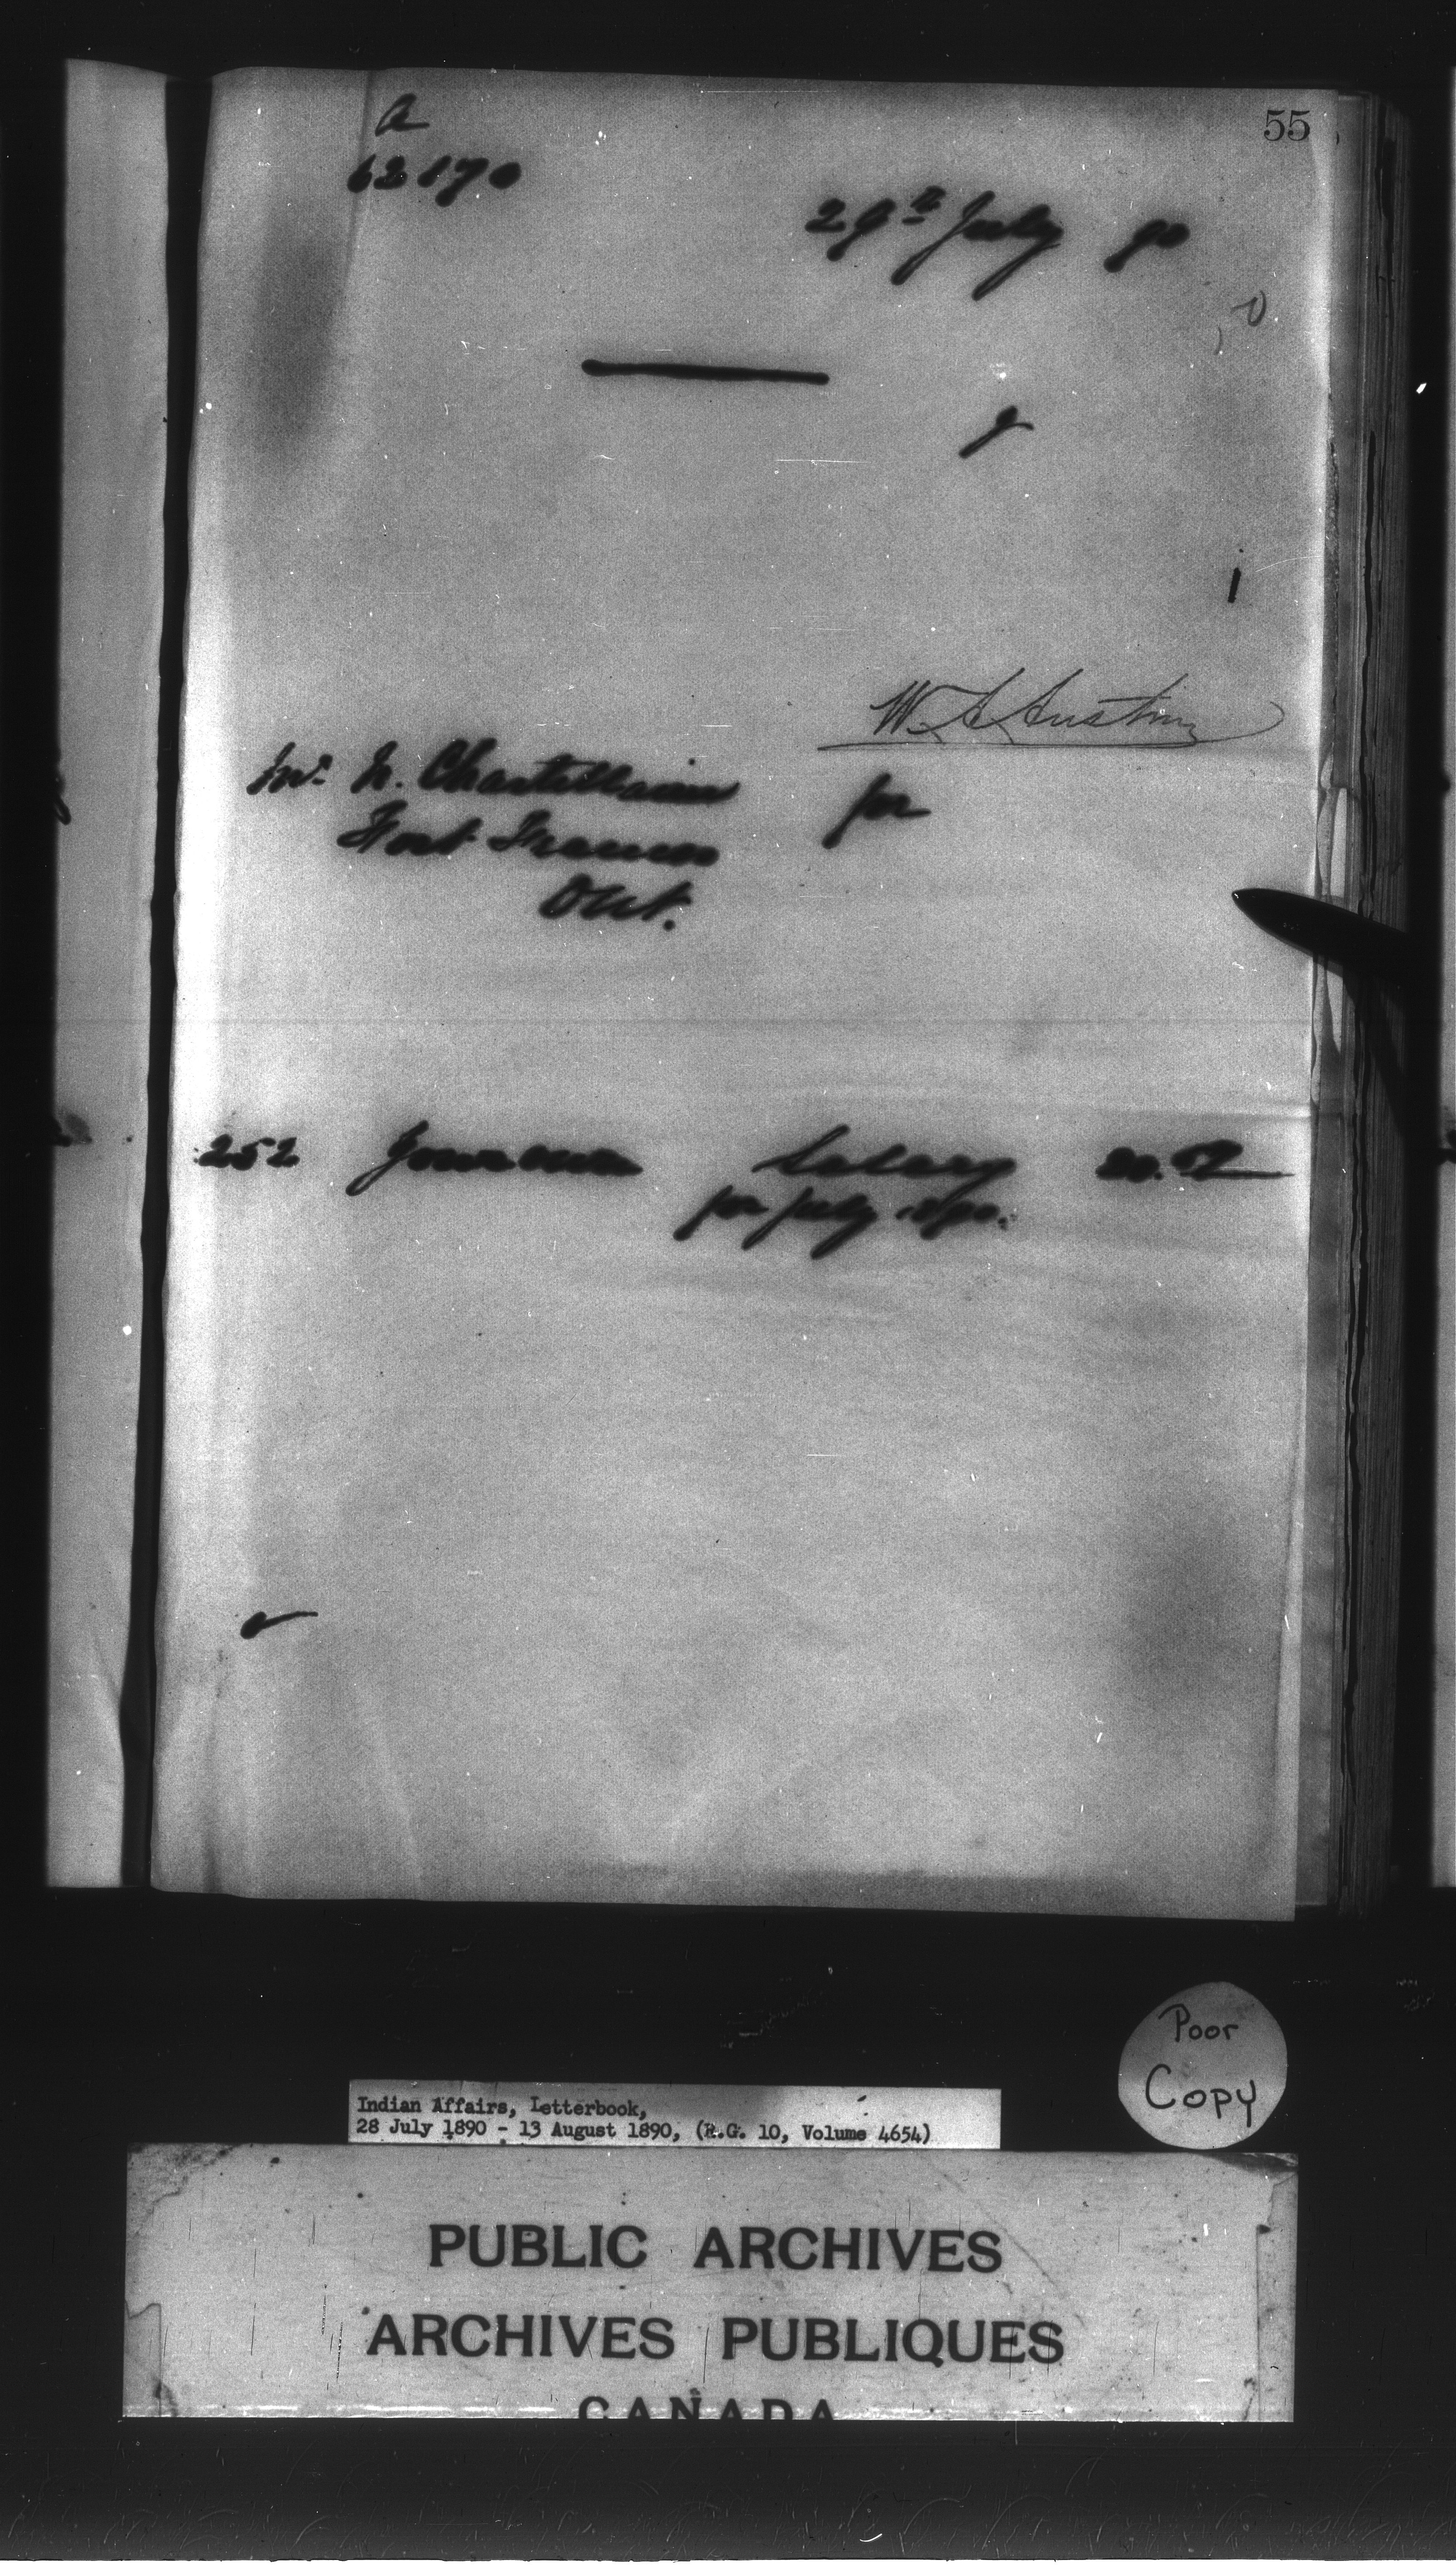 55
a
62170
29th July 90
W A Austin
Mr. N. Chastellaine
for
Fort Frances
Ont.
252 Yourself Salary 20.
for July 1890.
Poor
Copy
Indian Affairs, Letterbook,
28 July 1890 - 13 August 1890, (R.G. 10, Volume 4654)
PUBLIC ARCHIVES
ARCHIVES PUBLIQUES
CANADA